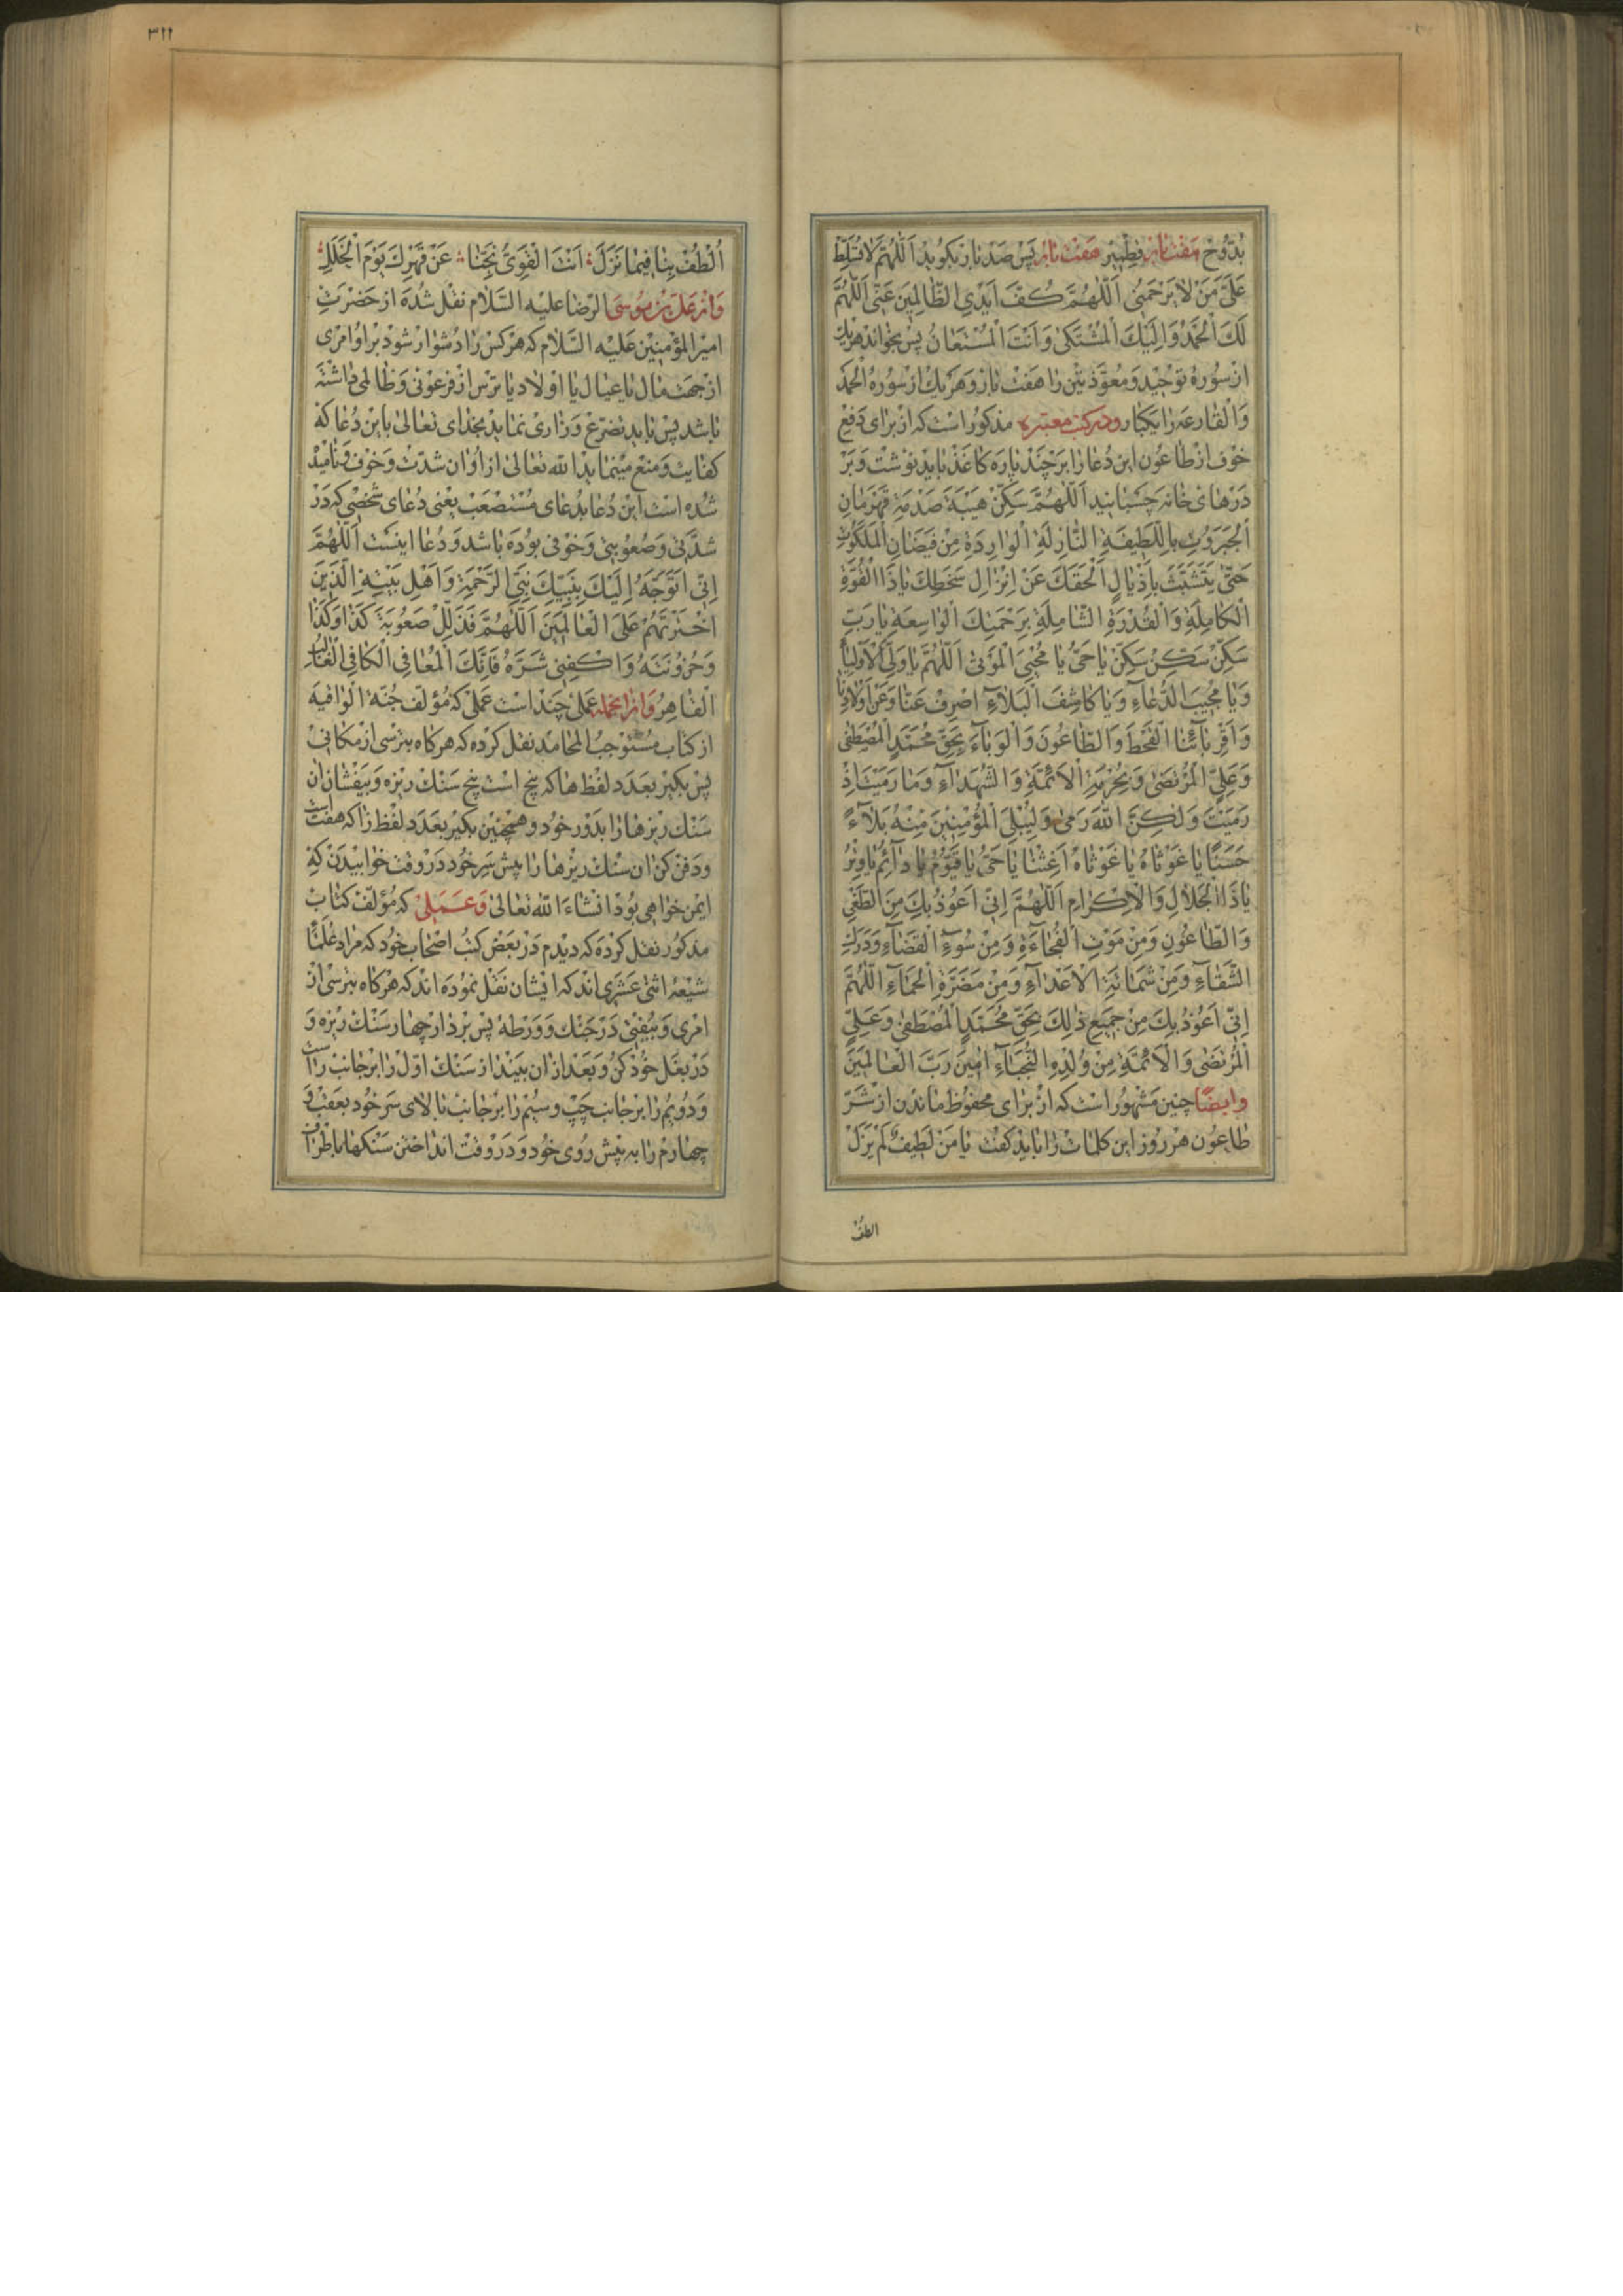 بدوح هفت بار فطبیر هفت بار پس صد بار بکوید اَللّٰهُمَّ لا تُسَلِّطْ
عَلَیَّ مَنْ لا یَرْحَمُنی اَللّٰهُمَّ کُفَّ اَیْدِی الظّالِمینَ عَنّی اَللّٰهُمَّ
لَکَ الْحَمْدُ وَاِلَیْکَ الْمُشْتَکیٰ وَاَنْتَ الْمُسْتَعانُ پس بخواند هر یک
از سُورهٔ توحید و معوّذتین را هفت بار و هر یک از سورهٔ الحمد
وَالْقارعه را یکبار و در کتب معتبره مذکور است که از برای دفع
خوف از طاعون این دعا را بر چند پاره کاغذ باید نوشت و بر
درهای خانه چسبانید اَللّٰهُمَّ سَکِّنْ هَیْبَةَ صَدْمَةِ قَهْرَمانِ
الْجَبَرُوتِ بِاللَّطیفَةِ النّازِلَةِ الْوارِدَةِ مِنْ فَیَضانِ الْمَلَکُوتِ
حَتّیٰ یَتَشَبَّثَ بِاَذْیالِ لُطْفِکَ عَنْ اِنْزالِ سَخَطِکَ یا ذَا الْقُوَّةِ
الْکامِلَةِ وَالْقُدْرَةِ الشّامِلَةِ بِرَحْمَتِکَ الْواسِعَةِ یا رَبِّ
سَکِّنْ سَکِّنْ سَکِّنْ یا حَیُّ یا مُحْیِیَ الْمَوْتیٰ اَللّٰهُمَّ یا وَلِیَّ الْاَوْلِیاءِ
وَیا مُجیبَ الدُّعاءِ وَیا کاشِفَ الْبَلاءِ اصْرِفْ عَنّا وَعَنْ اَوْلادِنا
وَاَقْرِبائِنَا الْقَحْطَ وَالطّاعُونَ وَالْوَباءَ بِحَقِّ مُحَمَّدٍ الْمُصْطَفیٰ
وَعَلِیٍّ الْمُرْتَضیٰ وَبِحُرْمَةِ الْاَئِمَّةِ وَالشُّهَداءِ وَما رَمَیْتَ اِذْ
رَمَیْتَ وَلٰکِنَّ اللهَ رَمیٰ وَلِیُبْلِیَ الْمُؤْمِنینَ مِنْهُ بَلاءً
حَسَنًا یا غَوْثاهُ یا غَوْثاهُ اَغِثْنا یا حَیُّ یا قَیُّومُ یا دائِمُ یا وِتْرُ
یا ذَا الْجَلالِ وَالْاِکْرامِ اَللّٰهُمَّ اِنّی اَعُوذُ بِکَ مِنَ الطَّعْنِ
وَالطّاعُونِ وَمِنْ مَوْتِ الْفُجاءَةِ وَمِنْ سُوءِ الْقَضاءِ وَدَرَکِ
الشَّقاءِ وَمِنْ شَماتَةِ الْاَعْداءِ وَمِنْ مَضَرَّةِ الْحُمّاءِ اَللّٰهُمَّ
اِنّی اَعُوذُ بِکَ مِنْ جَمیعِ ذٰلِکَ بِحَقِّ مُحَمَّدٍ الْمُصْطَفیٰ وَعَلِیٍّ
الْمُرْتَضیٰ وَالْاَئِمَّةِ مِنْ وُلْدِهِ النُّجَباءِ اٰمینَ رَبَّ الْعالَمینَ
وایضًا چنین مشهور است که از برای محفوظ ماندن از شرّ
طاعون هر روز این کلمات را باید کفت یا مَنْ لَطیفٌ لَمْ یَزَلْ
الطف
٣١١
اُلْطُفْ بِنا فیما نَزَلَ اَنْتَ الْقَوِیُّ نَجِّنا عَنْ قَهْرِکَ یَوْمَ الْخَلَلِ
وَاز علیّ بن موسی الرّضا علیه السّلام نقل شده از حضرت
امیر المؤمنین علیه السّلام که هر کس را دشوار شود بر او امری
از جهت مال یا عیال یا اولاد یا ترس از فرعونی و ظالمی داشته
باشد پس باید تضرّع و زاری نماید بخدای تعالیٰ باین دعا که
کفایت و منع مینماید الله تعالیٰ از او ان شدّت و خوف و نامیده
شده است این دعا بدعای مستصعب یعنی دعای شخصی که در
شدّتی و صعوبتی و خوفی بوده باشد و دعا اینست اَللّٰهُمَّ
اِنّی اَتَوَجَّهُ اِلَیْکَ بِنَبِیِّکَ نَبِیِّ الرَّحْمَةِ وَاَهْلِ بَیْتِهِ الَّذینَ
اخْتَرْتَهُمْ عَلَی الْعالَمینَ اَللّٰهُمَّ فَذَلِّلْ صَعُوبَةَ کَذا وَکَذا
وَحُزُونَتَهُ وَاکْفِنی شَرَّهُ فَاِنَّکَ الْمُعافِی الْکافِی الْغالِبُ
الْقاهِرُ وَازانجمله عملی چند است عملی که مؤلف جُنّة الواقیه
از کتاب مستوجب المحامد نقل کرده که هرکاه بترسی از مکانی
پس بکیر بعدد لفظ ها که پنج است پنج سنک ریزه و بیفشان ان
سنک ریزها را بدور خود و همچنین بکیر بعدد لفظ زا که هفت است
و دفن کن ان سنک ریزها را پیش سر خود در وقت خوابیدن که
ایمن خواهی بود انشاء الله تعالیٰ وَعملی که مؤلف کتاب
مذکور نقل کرده که دیدم در بعض کتب اصحاب خود که مراد علمای
شیعه اثنی عشری اند که ایشان نقل نموده اند که هرکاه بترسی از
امری و بیفتی در جنک و ورطهٔ پس بردار چهار سنک ریزه و
در بغل خود کن و بعد از ان بینداز سنک اوّل را بر جانب راست
و دویم را بر جانب چپ و سیم را بر جانب بالای سر خود بعقب و
چهارم را به پیش روی خود و در وقت انداختن سنکها باطراف